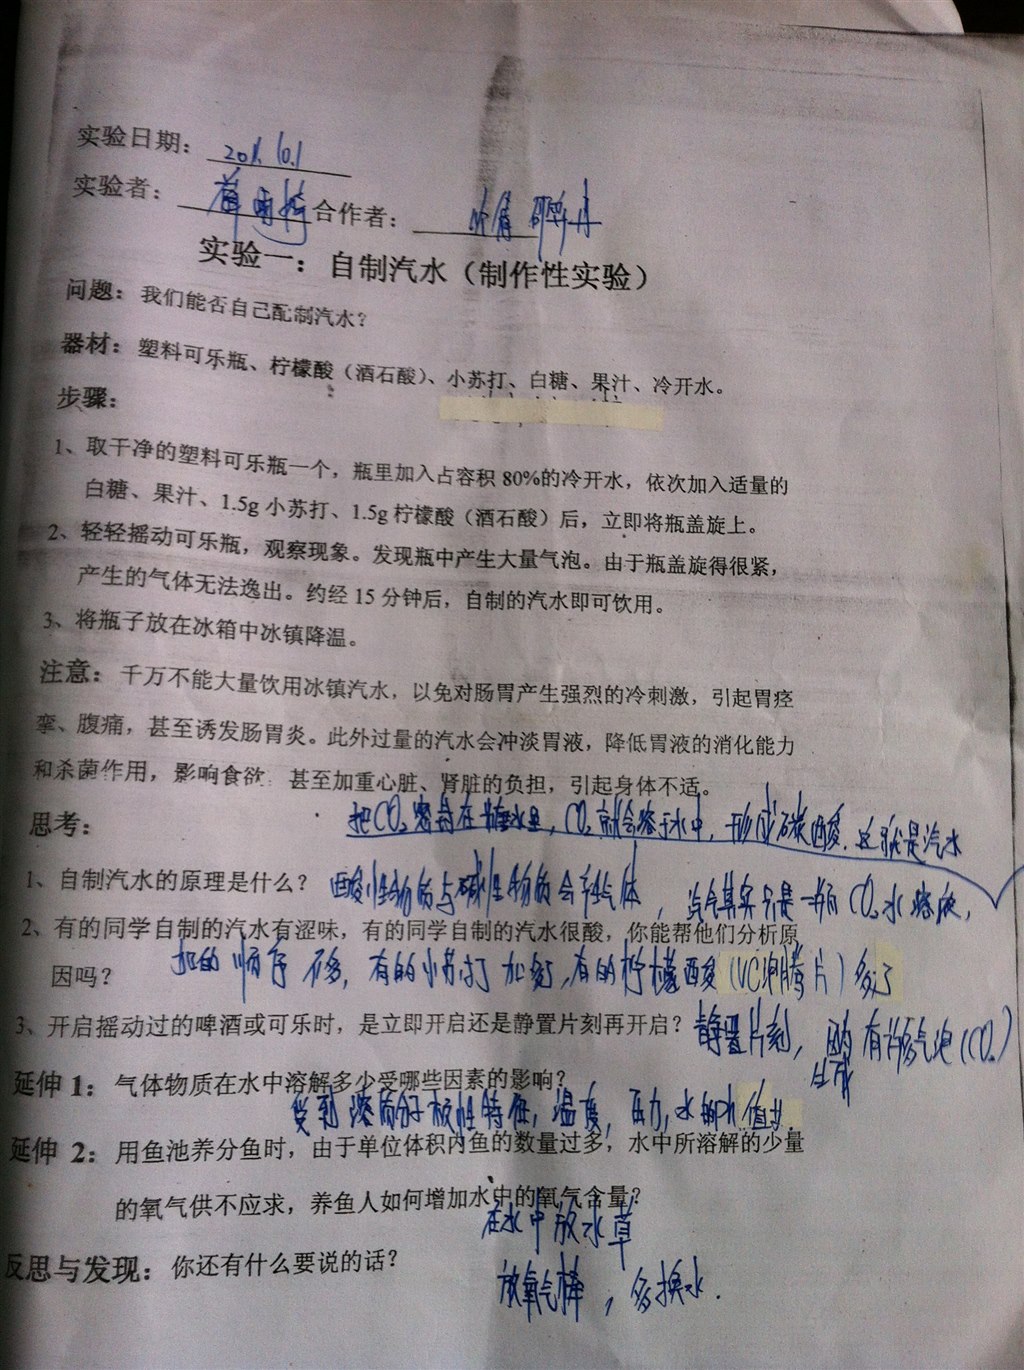 实验日期：
实验者： 合作者：
实验一：自制汽水（制作性实验）
问题：我们能否自己配制汽水？
器材：塑料可乐瓶、柠檬酸（酒石酸）、小苏打、白糖、果汁、冷开水。
步骤：
1、取干净的塑料可乐瓶一个，瓶里加入占容积 80%的冷开水，依次加入适量的
白糖、果汁、1.5g 小苏打、1.5g 柠檬酸（酒石酸）后，立即将瓶盖旋上。
2、轻轻摇动可乐瓶，观察现象。发现瓶中产生大量气泡。由于瓶盖旋得很紧，
产生的气体无法逸出。约经 15 分钟后，自制的汽水即可饮用。
3、将瓶子放在冰箱中冰镇降温。
注意：千万不能大量饮用冰镇汽水，以免对肠胃产生强烈的冷刺激，引起胃痉
挛、腹痛，甚至诱发肠胃炎。此外过量的汽水会冲淡胃液，降低胃液的消化能力
和杀菌作用，影响食欲．甚至加重心脏、肾脏的负担，引起身体不适。
思考：
把CO₂密封在糖水里，CO₂就会溶于水中，形成碳酸，这就是汽水
1、自制汽水的原理是什么？ 酸性物质与碱性物质会产生气体，汽气其实只是一瓶CO₂水溶液，
2、有的同学自制的汽水有涩味，有的同学自制的汽水很酸，你能帮他们分析原
因吗？ 加的顺序不多，有的小苏打加多了，有的柠檬酸（VC泡腾片）多了
3、开启摇动过的啤酒或可乐时，是立即开启还是静置片刻再开启？静置片刻，因为有许多气泡(CO₂)
生成
延伸 1：气体物质在水中溶解多少受哪些因素的影响？
受到溶质分子极性特征，温度，压力，水的pH值
延伸 2：用鱼池养分鱼时，由于单位体积内鱼的数量过多，水中所溶解的少量
的氧气供不应求，养鱼人如何增加水中的氧气含量？
在水中放水草
反思与发现：你还有什么要说的话？
放氧气棒，多换水．